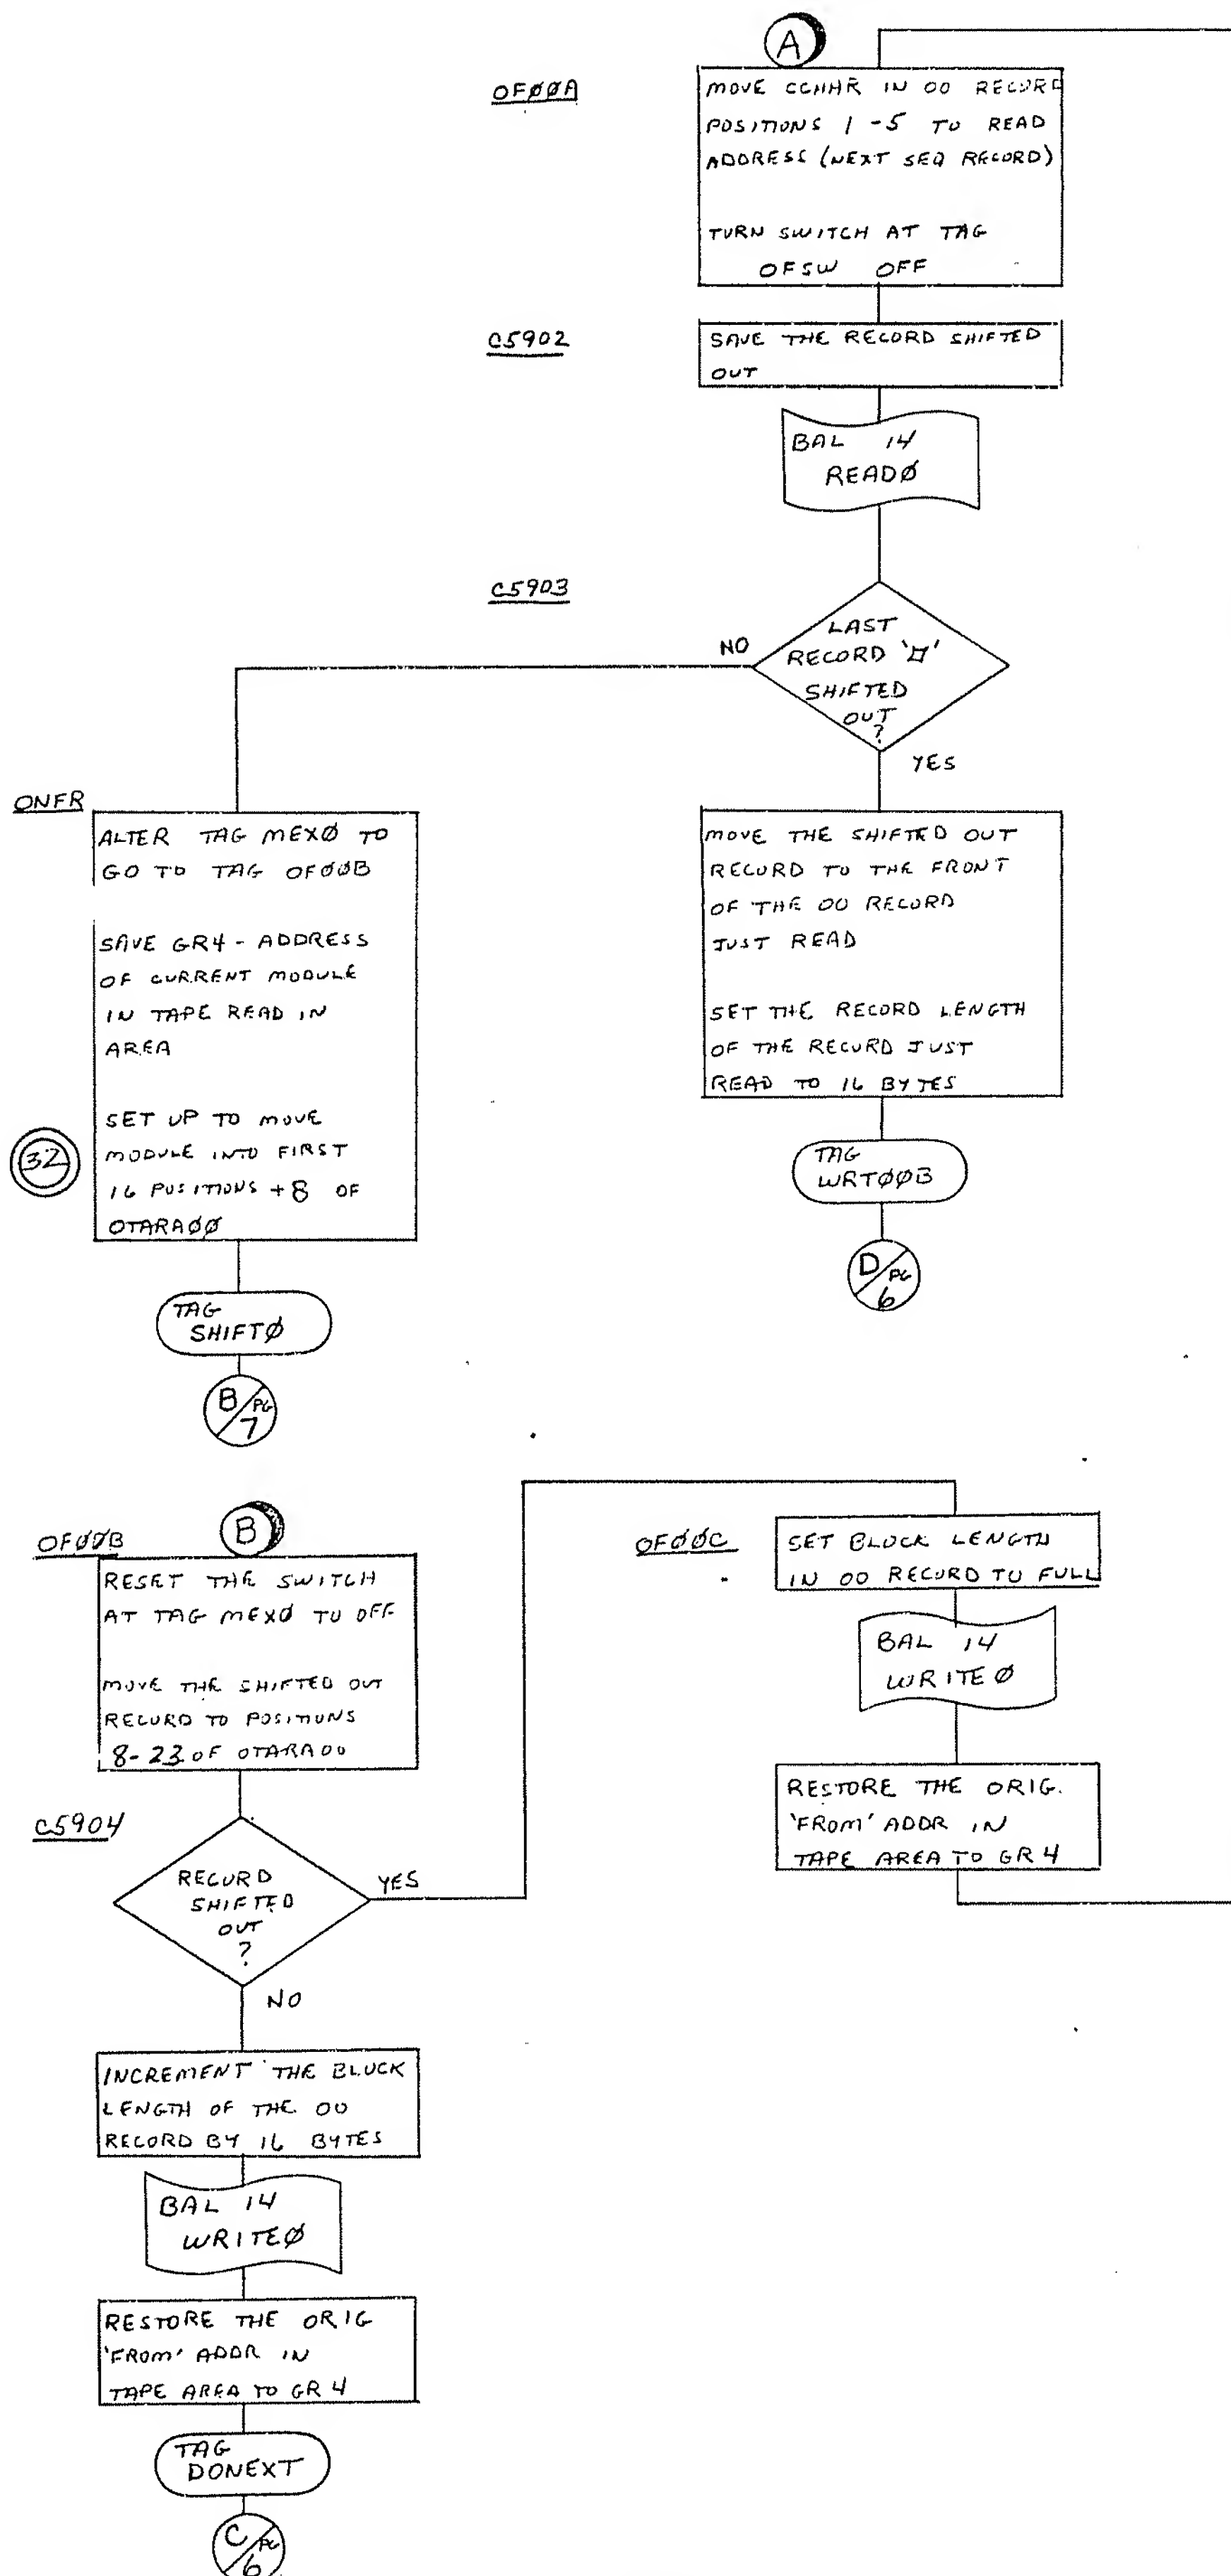 A
OFØØA
MOVE CCHHR IN OO RECORD
POSITIONS 1-5 TO READ
ADDRESS (NEXT SEQ RECORD)
TURN SWITCH AT TAG
OFSW OFF
C5902
SAVE THE RECORD SHIFTED
OUT
BAL 14
READØ
C5903
LAST
RECORD '⌑'
SHIFTED
OUT
?
NO
YES
ONFR
ALTER TAG MEXØ TO
GO TO TAG OFØØB
SAVE GR4 - ADDRESS
OF CURRENT MODULE
IN TAPE READ IN
AREA
SET UP TO MOVE
MODULE INTO FIRST
16 POSITIONS +8 OF
OTARAØØ
32
TAG
SHIFTØ
B/PG
7
MOVE THE SHIFTED OUT
RECORD TO THE FRONT
OF THE OO RECORD
JUST READ
SET THE RECORD LENGTH
OF THE RECORD JUST
READ TO 16 BYTES
TAG
WRTØØB
D/PG
6
B
OFØØB
RESET THE SWITCH
AT TAG MEXØ TO OFF
MOVE THE SHIFTED OUT
RECORD TO POSITIONS
8-23 OF OTARAOO
C5904
RECORD
SHIFTED
OUT
?
YES
NO
INCREMENT THE BLOCK
LENGTH OF THE OO
RECORD BY 16 BYTES
BAL 14
WRITEØ
RESTORE THE ORIG
'FROM' ADDR IN
TAPE AREA TO GR 4
TAG
DONEXT
C/PG
6
OFØØC
SET BLOCK LENGTH
IN OO RECORD TO FULL
BAL 14
WRITEØ
RESTORE THE ORIG.
'FROM' ADDR IN
TAPE AREA TO GR 4